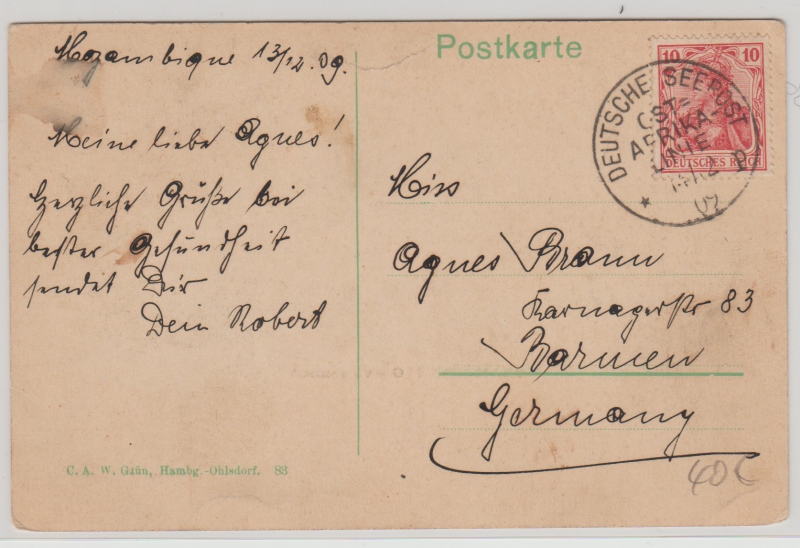 Mozambique 13/12.09.
Meine liebe Agnes!
Herzliche Grüße bei
bester Gesundheit
sendet Dir
Dein Robert
C. A. W. Gdün, Hambg.-Ohlsdorf. 83
Postkarte
10 10
DEUTSCHES REICH
DEUTSCHE SEEPOST
OST=
AFRIKA-
LINIE
Miss
Agnes Braun
Karnaperstr 83
Barmen
Germany
40 €